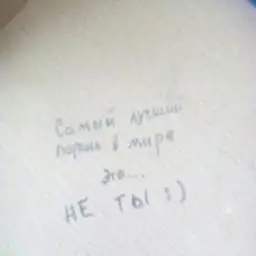 Самый лучший
парень в мире
это...
НЕ ТЫ :)